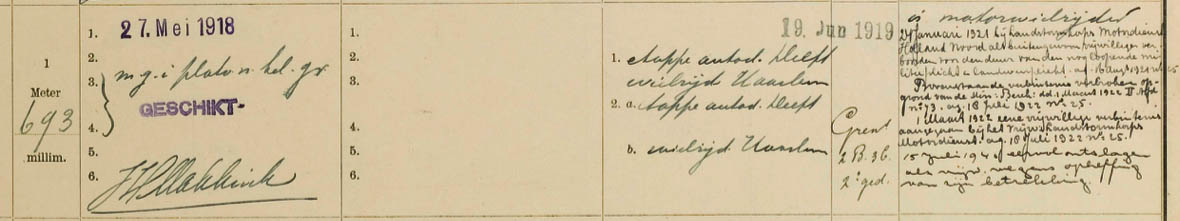 1
Meter
693
millim.
1. 27. Mei 1918
2.
3. m.g.i. plato n. hel. gr.
GESCHIKT-
4.
5.
6.
1.
2.
3.
4.
5.
6.
19. Jun 1919
1. etappe autod. Delft
wielrijd Haarlem
2. a. etappe autod. Delft
b. wielrijd Haarlem
Grens
2 B. 36.
2e ged.
is motorwielrijder
24 Januari 1921 bij Landstormkorps Motordienst
Holland Noord als buitengewoon vrijwilliger ver-
bonden voor den duur van den nog loopende mi-
litieplicht & landweerplicht. ag. 16 Aug. 1921 no 25
Bovenstaande verbintenis verbroken op
grond van de Min. Besch: dd. 1 Maart 1922 II Afd
no. 73. ag. 18 Juli 1922 no 25.
1 Maart 1922 eene vrijwillige verbintenis
aangegaan bij het Vrijw. Landstormkorps
Motordienst. ag. 18 Juli 1922 no 25.
15 Juli 194 eervol ontslagen
als vrijw. wegens opheffing
van zijn betrekking.